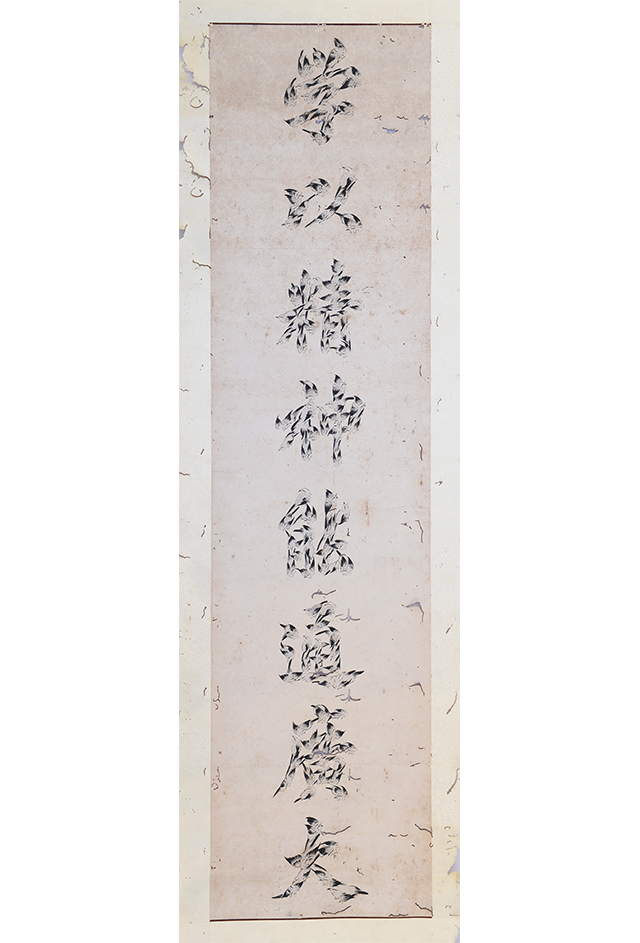 学以精神能通廣大